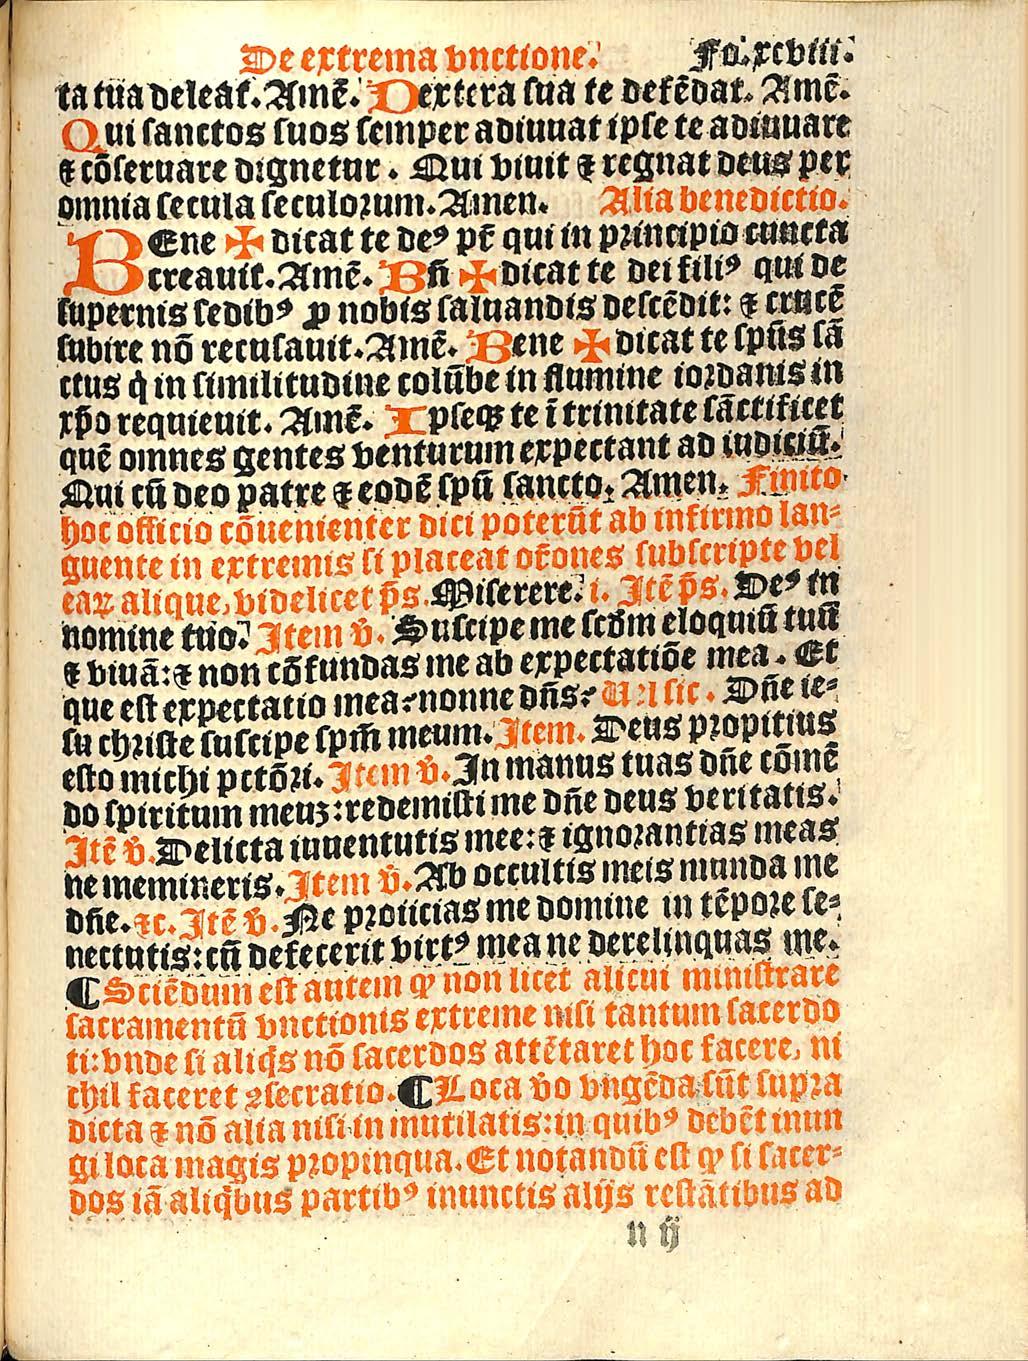 De extrema vnctione. Fo. xcviii.
ta tua deleat. Amē. Dextera sua te defēdat. Amē.
Qui sanctos suos semper adiuuat ipse te adiuuare
⁊ cōseruare dignetur. Qui viuit ⁊ regnat deus per
omnia secula seculoꝛum. Amen. Alia benedictio.
BEne ✠ dicat te deꝰ pr̄ qui in pꝛincipio cuncta
creauit. Amē. Bn̄ ✠ dicat te dei filiꝰ qui de
supernis sedibꝰ ꝓ nobis saluandis descēdit: ⁊ crucē
subire nō recusauit. Amē. Bene ✠ dicat te spūs sā
ctus q̇ in similitudine colūbe in flumine ioꝛdanis in
xp̄o requieuit. Amē. Ipseqꝫ te ī trinitate sāctificet
quē omnes gentes venturum expectant ad iudiciū.
Qui cū deo patre ⁊ eodē spū sancto. Amen. Finito
hoc officio cōuenienter dici poterūt ab infirmo lan⸗
guente in extremis si placeat or̄ones subscripte vel
eaꝝ alique, videlicet p̄s. Miserere. i. Itē p̄s. Deꝰ in
nomine tuo. Item v̄. Suscipe me scd̄m eloquiū tuū
⁊ viuā: ⁊ non cōfundas me ab expectatiōe mea. Et
que est expectatio mea? nonne dn̄s? Uel sic. Dn̄e ie⸗
su christe suscipe spm̄ meum. Item. Deus pꝛopitius
esto michi pctōꝛi. Item v̄. In manus tuas dn̄e cōmē
do spiritum meuꝫ: redemisti me dn̄e deus veritatis.
Itē v̄. Delicta iuuentutis mee: ⁊ ignoꝛantias meas
ne memineris. Item v̄. Ab occultis meis munda me
dn̄e. ⁊c. Itē v̄. Ne pꝛoiicias me domine in tēpoꝛe se⸗
nectutis: cū defecerit virtꝰ mea ne derelinquas me.
¶ Sciēdum est autem ꝙ non licet alicui ministrare
sacramentū vnctionis extreme nisi tantum sacerdo
ti: vnde si aliq̇s nō sacerdos attētaret hoc facere, ni
chil faceret ꝯsecratio. ¶ Loca v̄o vngēda sūt supꝛa
dicta ⁊ nō alia nisi in mutilatis: in quibꝰ debēt inun
gi loca magis pꝛopinqua. Et notandū est ꝙ si sacer⸗
dos iā aliq̇bus partibꝰ inunctis alijs restātibus ad
n ij